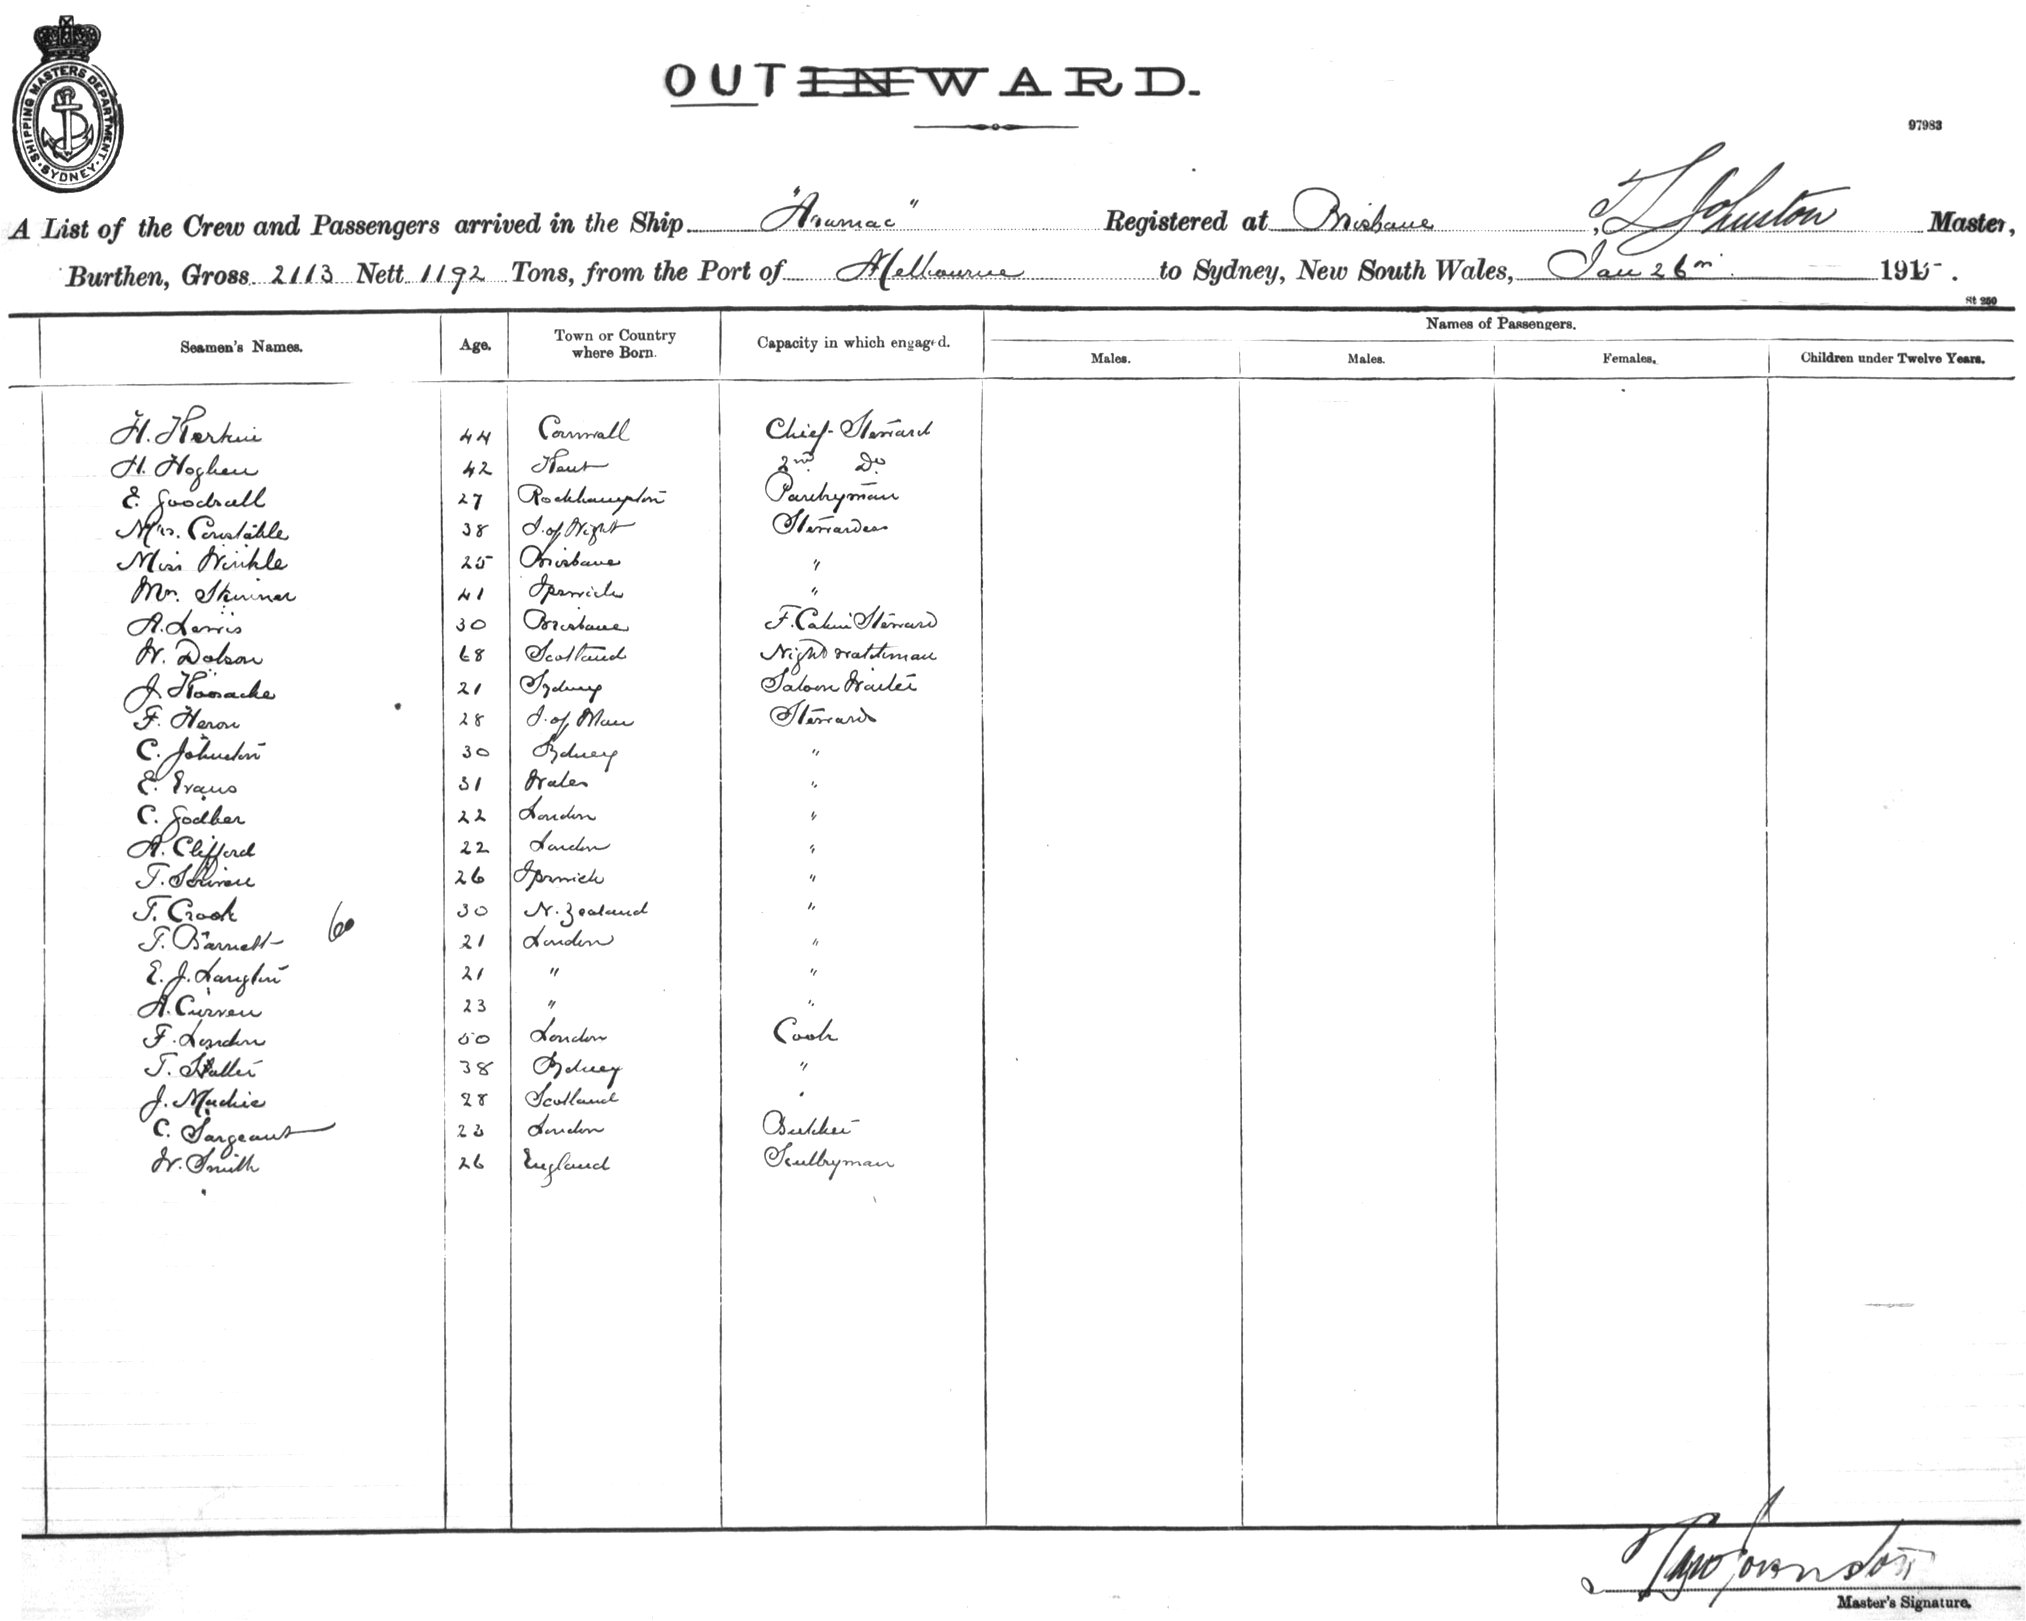 SHIPPING MASTERS DEPARTMENT. SYDNEY
OUTINWARD.
97983
A List of the Crew and Passengers arrived in the Ship "Aramac" Registered at Brisbane, T L Johnston Master,
Burthen, Gross 2113 Nett 1192 Tons, from the Port of Melbourne to Sydney, New South Wales, Jan 26th 1915.
St 250
Names of Passengers.
Seamen's Names. Age. Town or Country where Born. Capacity in which engaged. Males. Males. Females. Children under Twelve Years.
H. 44 Cornwall Chief Steward
H. Hoghen 42 Kent 2nd Do
E. Goodsall 27 Rockhampton Pantryman
Mrs. Constable 38 I. of Wight Stewardess
Miss Winkle 25 Brisbane "
Mrs. Skinner 41 Ipswich "
A. Lewis 30 Brisbane F. Cabin Steward
W. Dobson 68 Scotland Night watchman
J. 21 Sydney Saloon Waiter
F. Heron 28 I. of Man Steward
C. Johnston 30 Sydney "
E. Evans 31 Wales "
C. Godber 22 London "
A. Clifford 22 London "
T. 26 Ipswich "
T. Crook 30 N. Zealand "
60
T. Barnett 21 London "
E. J. Langton 21 " "
A. Curwen 23 " "
F. London 50 London Cook
T. 38 Sydney "
J. Mackie 28 Scotland "
C. Sargeant 23 London Butcher
W. Smith 26 England Scullryman
Johnston
Master's Signature.